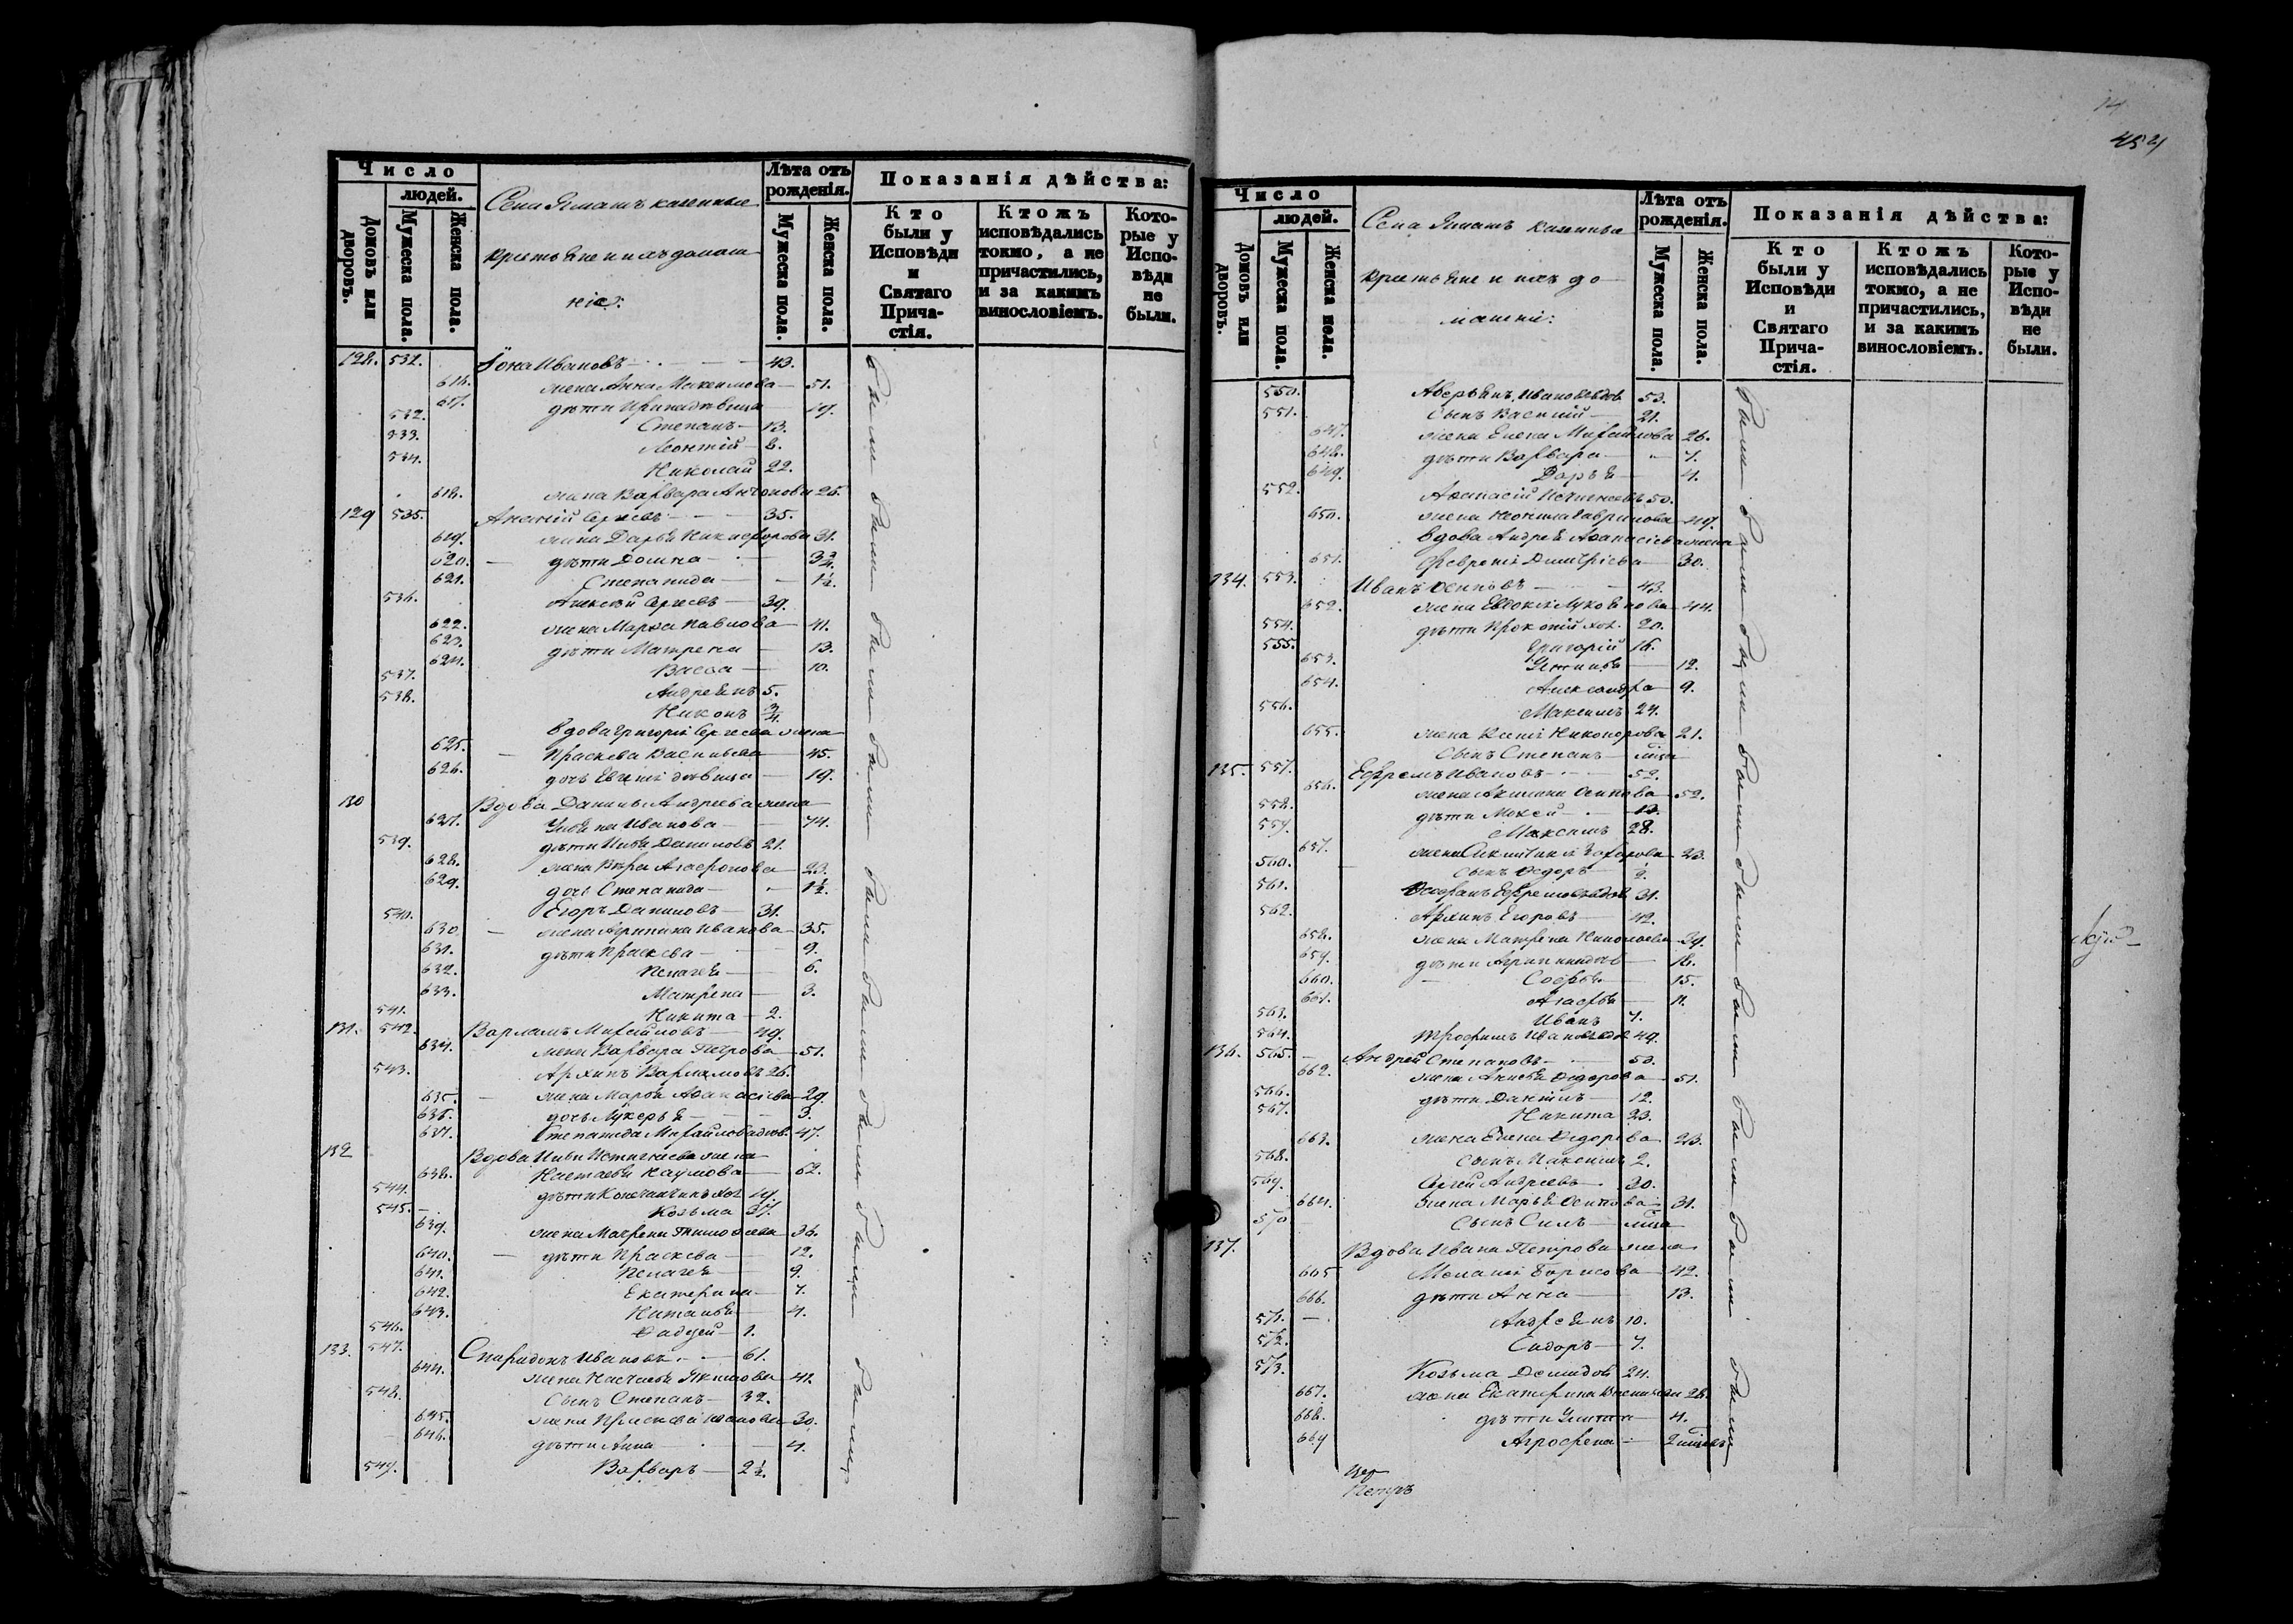 Число
людей.
Домовъ или дворовъ.
Мужеска пола.
Женска пола.
Села казенные
крестьяне и ихъ домаш
ніе:
Лѣта отъ рожденія.
Мужеска пола.
Женска пола.
Показанія дѣйства:
Кто были у Исповѣди и Святаго Причастія.
Ктожъ исповѣдались токмо, а не причастились, и за какимъ винословіемъ.
Которые у Исповѣди не были.
128. 531. Іона Ивановъ 43.
616. жена Анна Максимова 51.
617. дѣти 19.
532. Степанъ 13.
533. Леонтій 8.
534. Николай 22.
618. жена Варвара Антонова 25.
129 535. Ананій Сергѣевъ 35.
619. жена Дарья Никифорова 31.
620. дѣти Домна 3 3/4.
621. Степанида 1 1/2.
536. Алексѣй Сергѣевъ 39.
622. жена Марѳа Павлова 41.
623. дѣти Матрена 13.
624. Васса 10.
537. Андреянъ 5.
538. Никонъ 3/4.
вдова Григорія Сергѣева жена
625. Праскева Васильева 45.
626. дочь Евгенія дѣвица 19.
130 Вдова Данилы Андреева жена
627. Ульяна Иванова 74.
539. дѣти Илья Даниловъ 21.
628. жена Вѣра Агафонова 23.
629. дочь Степанида 1 1/2.
540. Егоръ Даниловъ 31.
630. жена Агрипина Иванова 35.
631. дѣти Праскева 9.
632. Пелагея 6.
633. Матрена 3.
541. Никита 2.
131. 542. Варламъ Михайловъ 49.
634. жена Варвара Петрова 51.
543. Архипъ Варламовъ 26.
635. жена Марья Аѳанасіева 29.
636. дочь Лукерья 3.
637. Степанида Михайлова 47.
132 Вдова Ильи жена
638. Настасья Наумова 62.
544. дѣти хол. 19.
545. Козьма 37.
639. жена Матрена Тимоѳеева 36.
640. дѣти Праскева 12.
641. Пелагея 9.
642. Екатерина 7.
643. Наталья 4.
546. Ѳаддей 1.
133. 547. Спиридонъ Ивановъ 61.
644. жена Настасья 41.
548. сынъ Степанъ 32.
645. жена Праскева Иванова 30.
646. дѣти Анна 4.
549. Варваръ 2 1/2.
были были были были были были были были были были были были
14
454
Число
людей.
Домовъ или дворовъ.
Мужеска пола.
Женска пола.
Села казенные
крестьяне и ихъ до
машніе:
Лѣта отъ рожденія.
Мужеска пола.
Женска пола.
Показанія дѣйства:
Кто были у Исповѣди и Святаго Причастія.
Ктожъ исповѣдались токмо, а не причастились, и за какимъ винословіемъ.
Которые у Исповѣди не были.
550. Аверьянъ Ивановъ вдов 53.
551. сынъ Василій 21.
647. жена Елена Михайлова 26.
648. дѣти Варвара 7.
649. Дарья 4.
552. Аѳанасій 50.
650. жена Неонила Гаврилова 49.
вдова Андрея Аѳанасіева жена
651. Февронія Димитріева 30.
134. 553. Иванъ Осиповъ 43.
652. жена Евдокія Лукоянова 44.
554. дѣти Прокопій хол. 20.
555. Григорій 16.
653. Устинья 12.
654. Александра 9.
556. Максимъ 24.
655. жена Ксенія Никифорова 21.
сынъ Степанъ
135. 557. Ефремъ Ивановъ 52.
656. жена Акилина Осипова 52.
558. дѣти Мокей 13.
559. Максимъ 28.
657. жена Захарова 23.
560. сынъ Ѳедоръ 2.
561. Ефремовъ 31.
562. Архипъ Егоровъ 42.
658. жена Матрена Николаева 39.
659. дѣти Агрипина 18.
660. Софья 15.
661. Агафья 11.
563. Иванъ 7.
564. Трофимъ Ивановъ 49.
136. 565. Андрей Степановъ 53.
662. жена Анисья Ѳедорова 51.
566. дѣти Даніилъ 12.
567. Никита 23.
663. жена Елена Ѳедорова 23.
568. сынъ Максимъ 2.
569. Сергѣй Андреевъ 30.
664. жена Марья Осипова 31.
570 сынъ Силъ
137. Вдова Ивана Петрова жена
665 Меланія Борисова 42.
666. дѣти Анна 13.
571. Андреянъ 10.
572. Сидоръ 7.
573. Козьма Демидов 24.
667. жена Екатерина Васильева 28.
668. дѣти 4.
669 Агрофена
были были были были были были были были были были были
Іер
Петръ